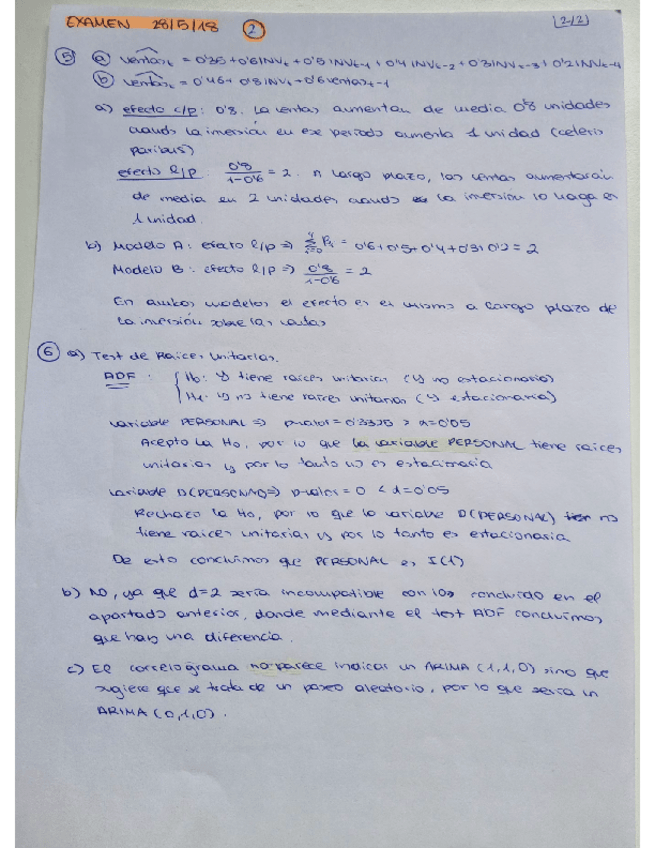 EXAMEN 28/5/18 2 (2/2)
5 a ventas_t = 0'35+0'6INV_t+0'5INV_t-1+0'4INV_t-2+0'3INV_t-3+0'2INV_t-4
b ventas_t = 0'46+0'8INV_t+0'6ventas_t-1
a) efecto c/p: 0'8. La ventas aumentan de media 0'8 unidades
cuando la inversión en ese periodo aumenta 1 unidad (ceteris
paribus)
efecto l/p 0'8/1-0'6 = 2. A largo plazo, las ventas aumentarán
de media en 2 unidades cuando la inversión lo haga en
1 unidad.
b) Modelo A: efecto l/p => 4 Σ i=0 βi = 0'6+0'5+0'4+0'3+0'2=2
Modelo B: efecto l/p => 0'8/1-0'6 = 2
En ambos modelos el efecto es el mismo a largo plazo de
la inversión sobre las ventas
6 a) Test de Raíces Unitarias.
ADF: { H0: Y tiene raíces unitarias (Y no estacionario)
H1: Y no tiene raíces unitarias (Y estacionaria)
variable PERSONAL => p-valor=0'3325 > α=0'05
Acepto la H0, por lo que la variable PERSONAL tiene raíces
unitarias y por lo tanto no es estacionaria
variable D(PERSONAL)=> p-valor=0 < α=0'05
Rechazo la H0, por lo que la variable D(PERSONAL) no
tiene raíces unitarias y por lo tanto es estacionaria
De esto concluimos que PERSONAL es I(1)
b) NO, ya que d=2 sería incompatible con los concluido en el
apartado anterior, donde mediante el test ADF concluimos
que hay una diferencia.
c) El correlograma no parece indicar un ARIMA (1,1,0) sino que
sugiere que se trata de un paseo aleatorio, por lo que sería un
ARIMA (0,1,0).